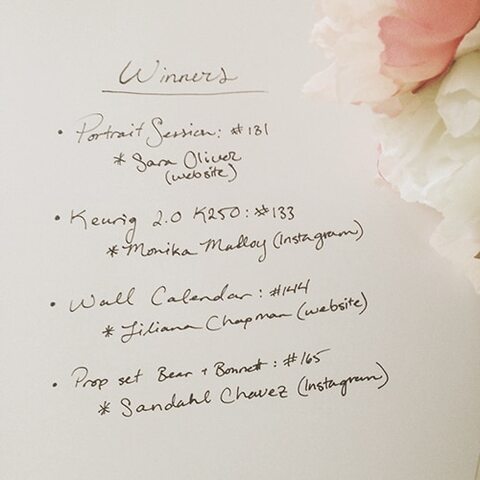 Winners
• Portrait Session: #131
* Sara Oliver
(website)
• Keurig 2.0 K250: #133
* Monika Malloy (Instagram)
• Wall Calendar: #144
* Liliana Chapman (website)
• Prop set Bear + Bonnett: #165
* Sandahl Chavez (Instagram)